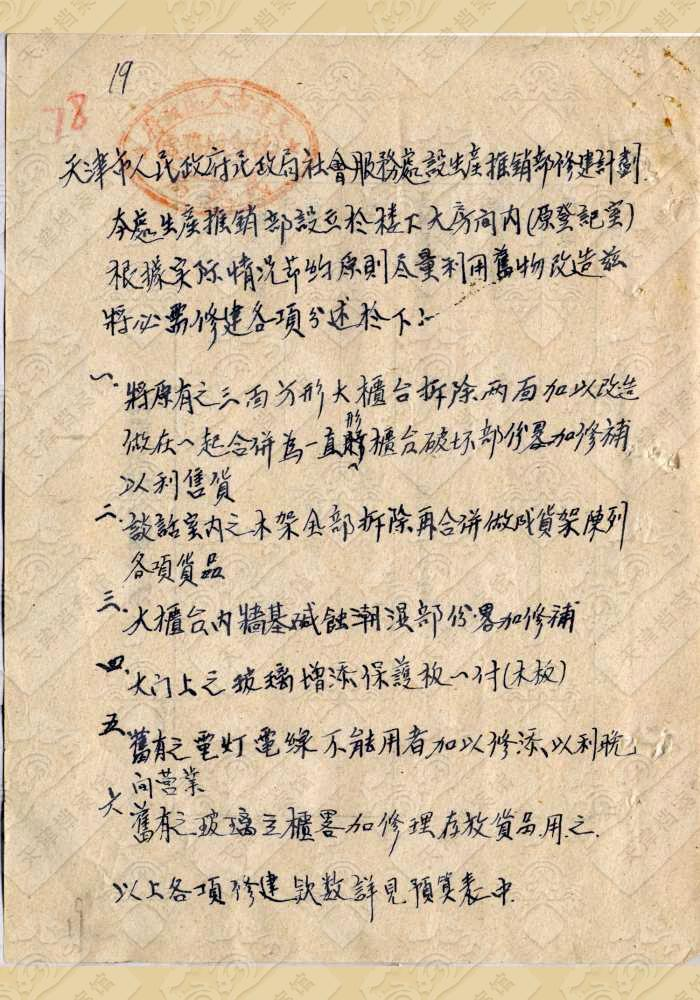 19
78
天津市人民政府民政局社會服務處設生產推銷部修建計劃
本處生產推銷部設立於楼下大房间内(原登記室)
根據实际情况节约原則尽量利用舊物改造茲
將必需修建各項分述於下:-
一.將原有之三面方形大櫃台拆除两面加以改造
做在一起合併為一直形櫃台破坏部份畧加修補
以利售貨
二.談話室内之木架全部拆除再合併做成貨架陳列
各項貨品
三.大櫃台内牆基碱蝕潮湿部份畧加修補
四.大门上之玻璃增添保護板一付(木板)
五.舊有之電灯電線不能用者加以修添以利晚
间营業
六.舊有之玻璃立櫃畧加修理存放貨品用之.
以上各項修建款数詳見預算表中.